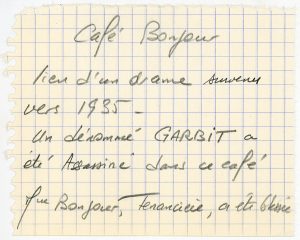 Café Bonjour
lieu d'un drame survenu
vers 1935 -
un dénommé GARBIT a
été Assassiné dans ce café
Bonjour, Tenancière, a été blessée